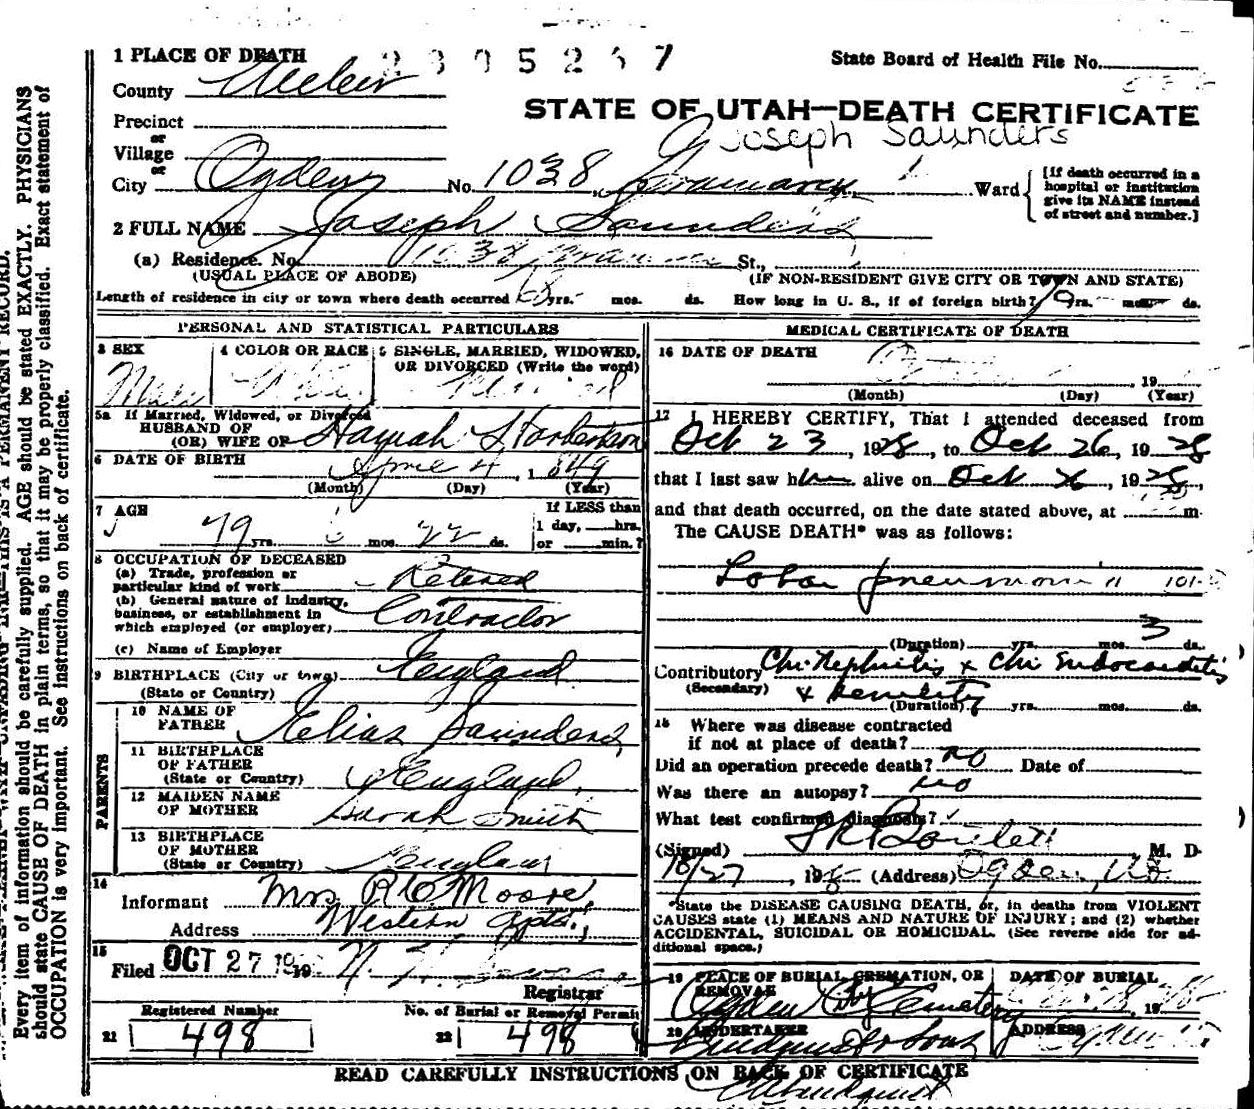 1 PLACE OF DEATH
2305267
State Board of Health File No.
County Weber
STATE OF UTAH—DEATH CERTIFICATE
Precinct
Joseph Saunders
or
Village
or
City Ogden No. 1038 Ward
[If death occurred in a hospital or institution give its NAME instead of street and number.]
2 FULL NAME Joseph Saunders
(a) Residence. No. 1038 St.,
(USUAL PLACE OF ABODE) (IF NON-RESIDENT GIVE CITY OR TOWN AND STATE)
Length of residence in city or town where death occurred yrs. mos. ds. How long in U. S., if of foreign birth? yrs. mos. ds.
PERSONAL AND STATISTICAL PARTICULARS
3 SEX
Male
4 COLOR OR RACE
White
5 SINGLE, MARRIED, WIDOWED,
OR DIVORCED (Write the word)
Married
5a If Married, Widowed, or Divorced
HUSBAND OF
(OR) WIFE OF Hannah
6 DATE OF BIRTH April 4, 1849
(Month) (Day) (Year)
7 AGE
79 yrs. 6 mos. 22 ds.
If LESS than
1 day, hrs.
or min.?
8 OCCUPATION OF DECEASED
(a) Trade, profession or
particular kind of work Retired
(b) General nature of industry,
business, or establishment in
which employed (or employer) Contractor
(c) Name of Employer
9 BIRTHPLACE (City or town) England
(State or Country)
PARENTS
10 NAME OF
FATHER Saunders
11 BIRTHPLACE
OF FATHER
(State or Country) England
12 MAIDEN NAME
OF MOTHER Sarah Smith
13 BIRTHPLACE
OF MOTHER
(State or Country) England
14
Informant Mrs R C Moore
Address Western Apts.
15
Filed OCT 27 19
Registrar
Registered Number
21 498
No. of Burial or Removal Permit
22 498
MEDICAL CERTIFICATE OF DEATH
16 DATE OF DEATH
, 19
(Month) (Day) (Year)
17 I HEREBY CERTIFY, That I attended deceased from
Oct 23, 1928, to Oct 26, 1928
that I last saw him alive on Oct 26, 1928,
and that death occurred, on the date stated above, at m.
The CAUSE DEATH* was as follows:
Lobar pneumonia 101
(Duration) yrs. mos. 3 ds.
Contributory Chr. Nephritis & Chr Endocarditis
(Secondary) & senility
(Duration) yrs. mos. ds.
18 Where was disease contracted
if not at place of death?
Did an operation precede death? no Date of
Was there an autopsy? no
What test confirmed diagnosis?
(Signed) M. D.
10/27, 1928 (Address) Ogden, Ut
*State the DISEASE CAUSING DEATH, or, in deaths from VIOLENT
CAUSES state (1) MEANS AND NATURE OF INJURY; and (2) whether
ACCIDENTAL, SUICIDAL OR HOMICIDAL. (See reverse side for ad-
ditional space.)
19 PLACE OF BURIAL, CREMATION, OR
REMOVAL
Ogden City Cemetery
DATE OF BURIAL
, 19
20 UNDERTAKER
Lindquist & Sons
ADDRESS
Ogden
READ CAREFULLY INSTRUCTIONS ON BACK OF CERTIFICATE
Lindquist
Every item of information should be carefully supplied. AGE should be stated EXACTLY. PHYSICIANS
should state CAUSE OF DEATH in plain terms, so that it may be properly classified. Exact statement of
OCCUPATION is very important. See instructions on back of certificate.